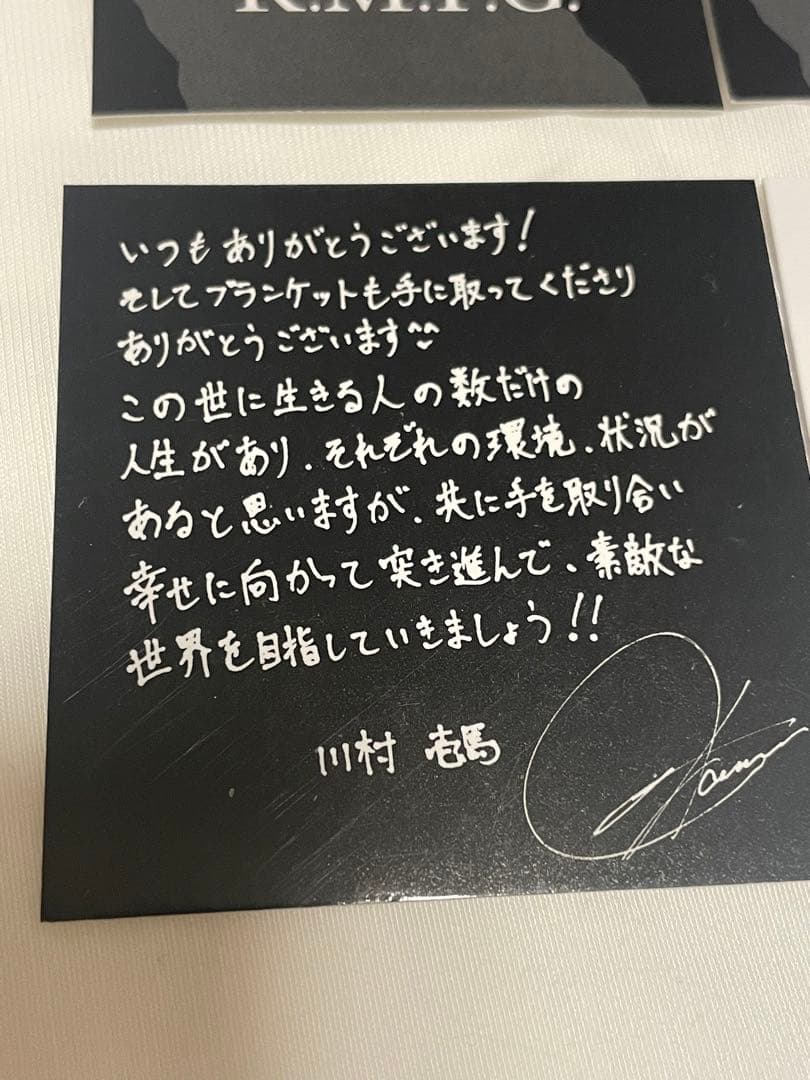 R.M.P.G.
いつもありがとうございます!
そしてブランケットも手に取ってくださり
ありがとうございます^^
この世に生きる人の数だけの
人生があり、それぞれの環境、状況が
あると思いますが、共に手を取り合い
幸せに向かって突き進んで、素敵な
世界を目指していきましょう!!
川村 壱馬